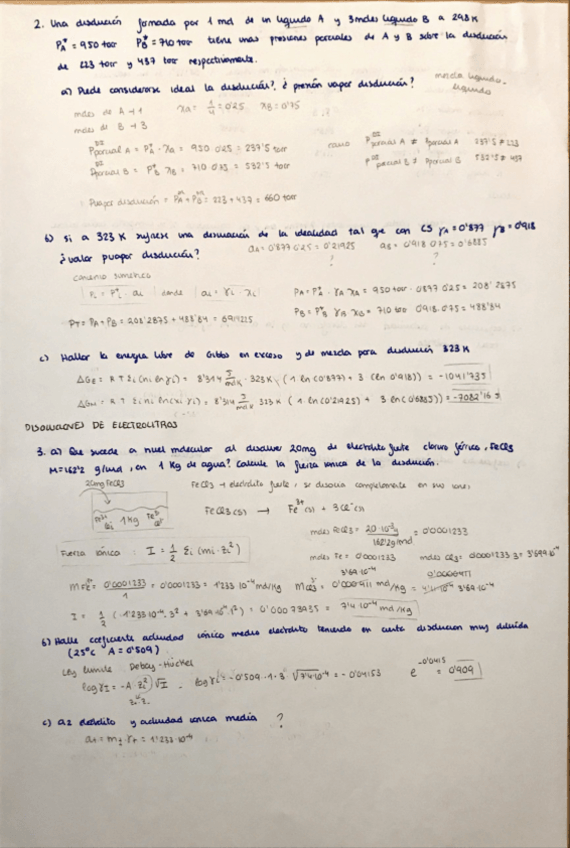 2. Una disolución formada por 1 mol de un líquido A y 3 moles líquido B a 298 K
P*A = 950 torr P*B = 710 torr tiene unas presiones parciales de A y B sobre la disolución
de 223 torr y 437 torr respectivamente.
a) Puede considerarse ideal la disolución? ¿presión vapor disolución?
mezcla líquido-líquido
moles de A → 1 xA = 1/4 = 0'25 xB = 0'75
moles de B → 3
Pparcial A = P*A · xA = 950 · 0'25 = 237'5 torr
Pparcial A ≠ Pparcial A 237'5 ≠ 223
Pparcial B = P*B xB = 710 · 0'75 = 532'5 torr
Pparcial B ≠ Pparcial B 532'5 ≠ 437
Pvapor disolución = PA + PB = 223 + 437 = 660 torr
b) Si a 323 K sufriese una desviación de la idealidad tal que con CS γA = 0'877 γB = 0'918
¿valor pvapor disolución? aA = 0'877 · 0'25 = 0'21925 aB = 0'918 · 0'75 = 0'6885
? ?
convenio simétrico
Pi = P*i · ai donde ai = γi · xi
PA = P*A · γA · xA = 950 torr · 0'877 · 0'25 = 208'2875
PB = P*B γB xB = 710 torr 0'918 · 0'75 = 488'84
PT = PA + PB = 208'2875 + 488'84 =
c) Hallar la energía libre de Gibbs en exceso y de mezcla para disolución 323 K
ΔGE = R T Σi (ni ln γi) = 8'314 J/mol·K · 323 K · (1 · ln (0'877) + 3 (ln 0'918)) = -1041'735
ΔGM = R T Σi ni ln (xi γi) = 8'314 J/mol·K 323 K (1 ln (0'21925) + 3 ln (0'6885)) = -7082'16 J
DISOLUCIONES DE ELECTROLITOS
3. a) Que sucede a nivel molecular al disolver 20mg de electrolito fuerte cloruro férrico, FeCl3
M = 162'2 g/mol, en 1 kg de agua? Calcule la fuerza iónica de la disolución.
20mg FeCl3
1 kg
FeCl3 → electrolito fuerte, se disocia completamente en sus iones
FeCl3 (s) → Fe3+ (s) + 3 Cl- (s)
moles FeCl3 = 20·10-3 g / 162'2 g/mol = 0'0001233
Fuerza iónica : I = 1/2 Σi (mi · zi2)
moles Fe = 0'0001233 moles Cl3 = 0'0001233 · 3 = 3'699·10-4
m Fe3+ = 0'0001233/1 = 0'0001233 = 1'233·10-4 mol/kg
3'69·10-4
I = 1/2 (1'233·10-4 · 32 + 3'69·10-4 · 12) = 0'00073935 = 7'4·10-4 mol/kg
b) Halle coeficiente actividad iónico medio electrolito teniendo en cuenta disolución muy diluida
(25°C A = 0'509)
Ley límite Debye-Hückel
log γi = -A zi2 √I log γ± = -0'509 · 1 · 3 · √7'4·10-4 = -0'04153 e-0'0415 = 0'909
c) a2 electrolito y actividad iónica media ?
a± = m± · γ± = 1'233·10-4